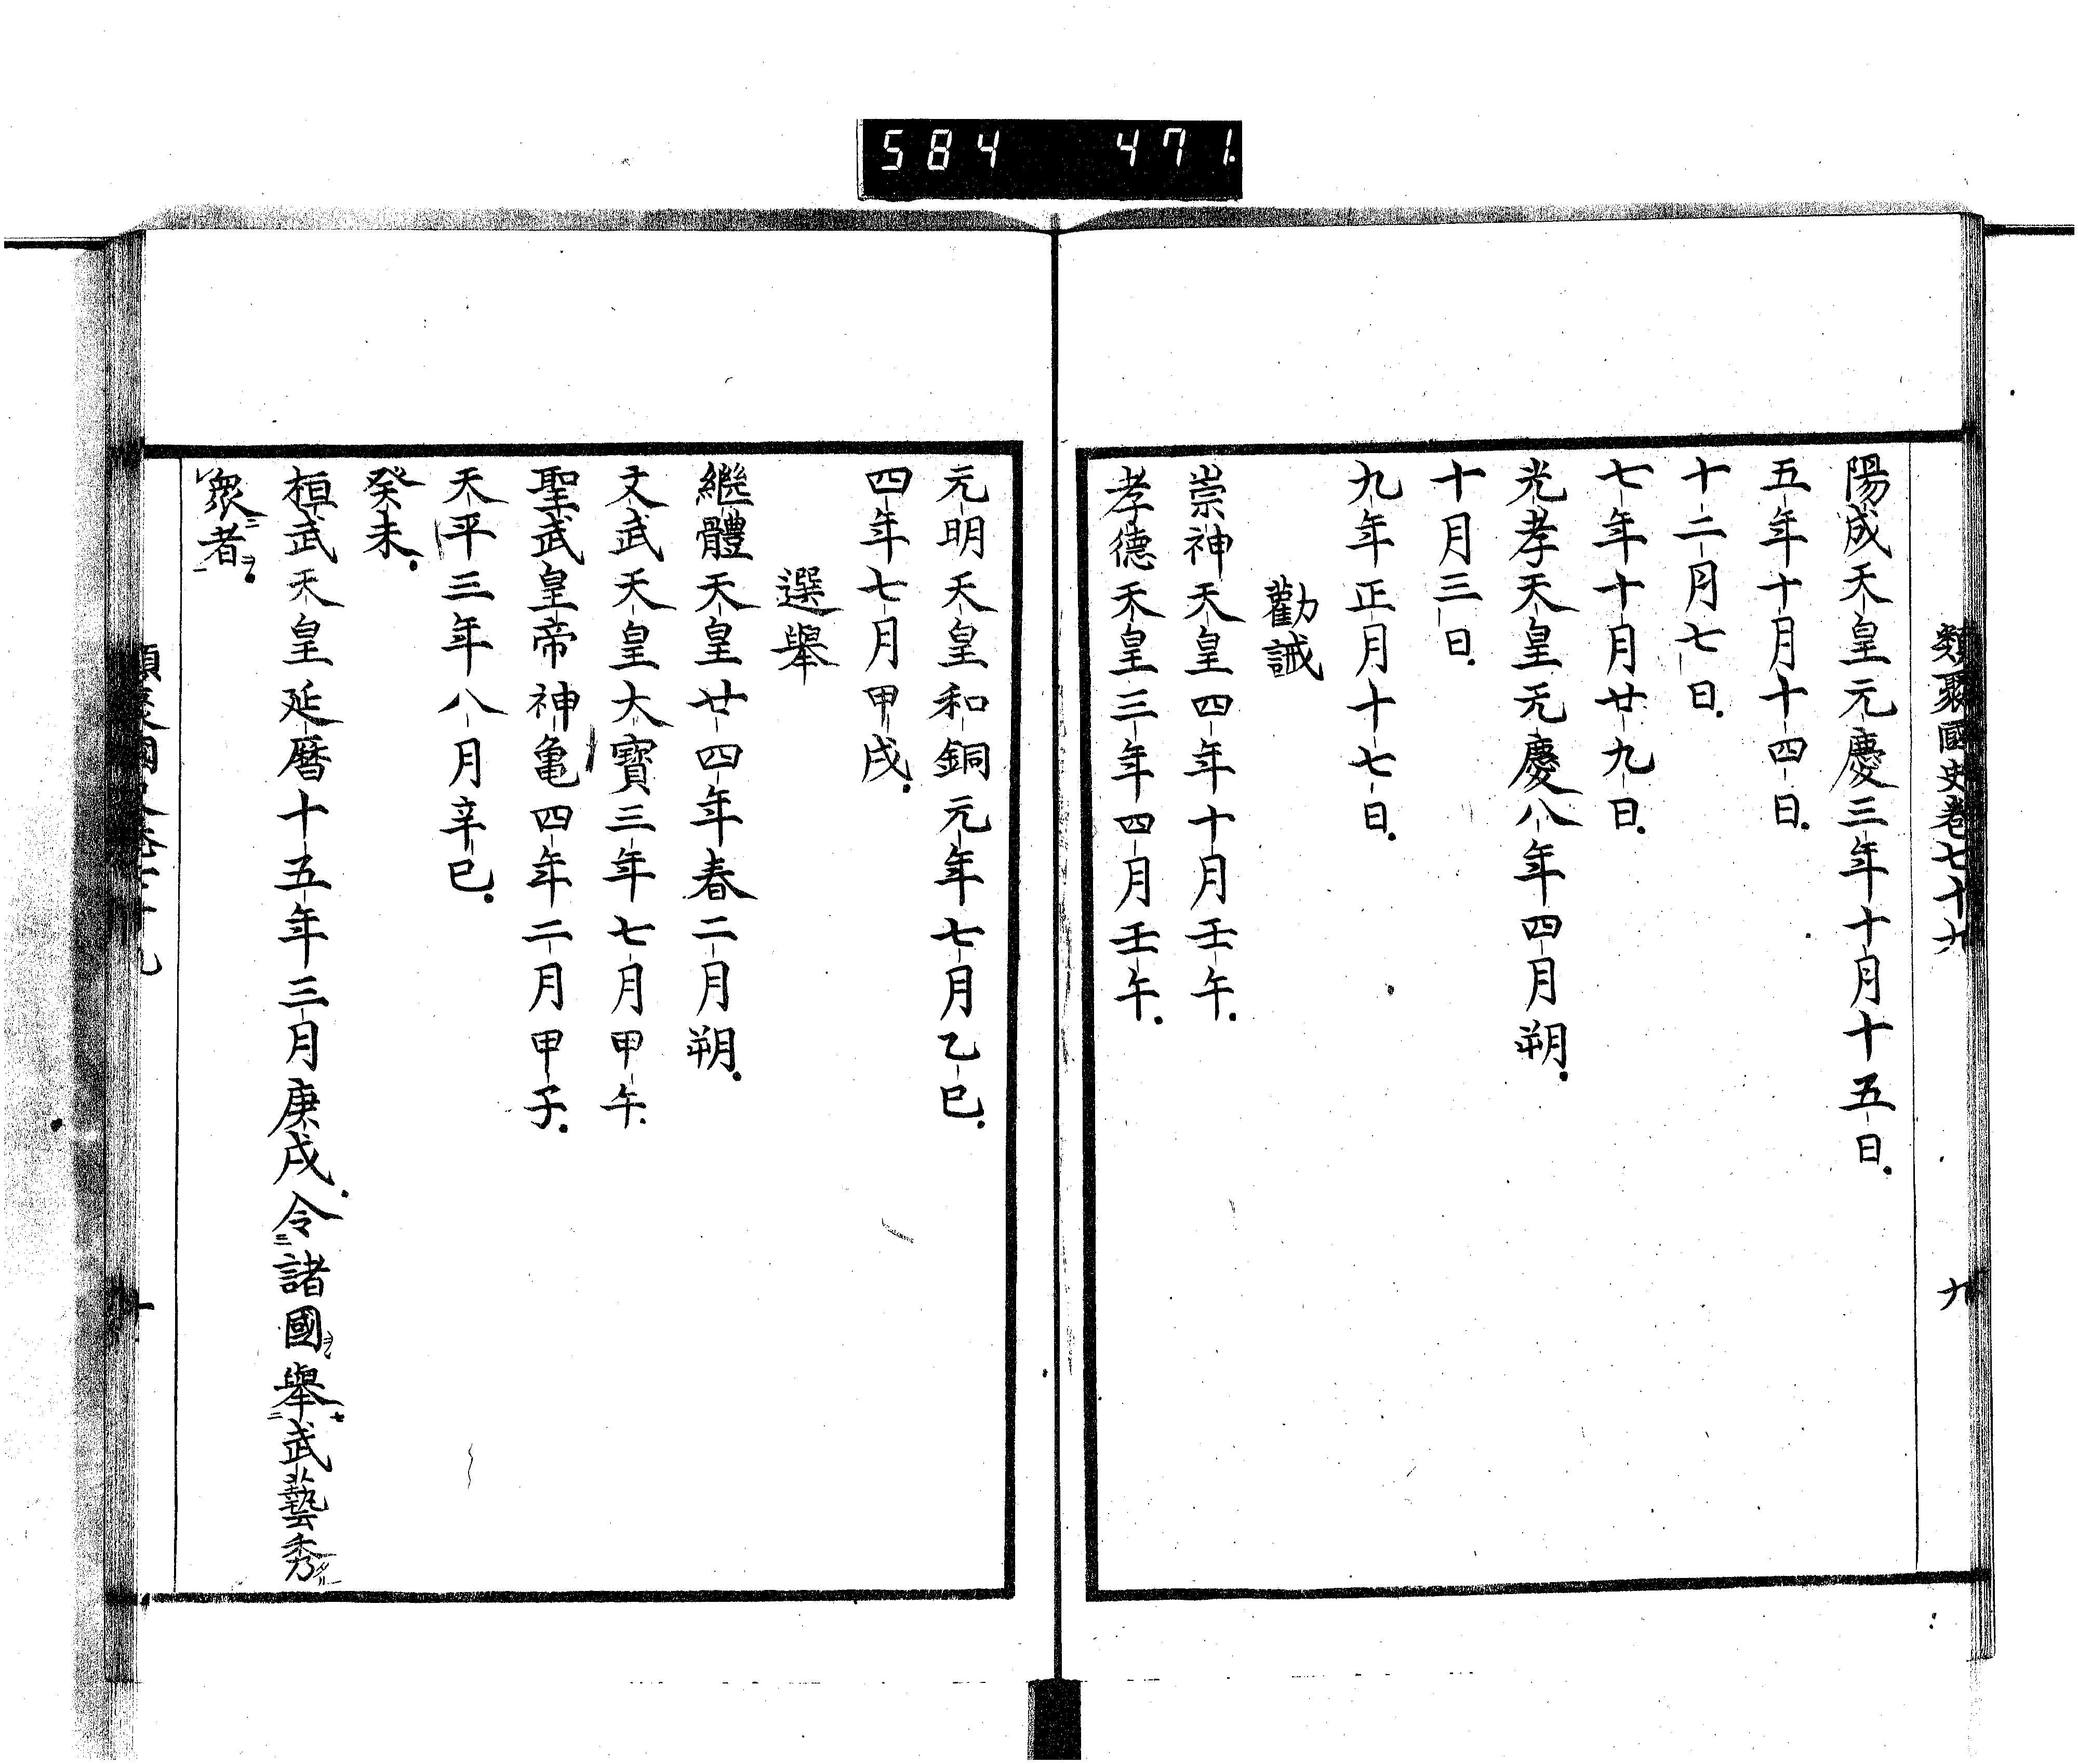 584 471
類聚國史卷七十九
九
陽成天皇元慶三年十月十五日.
五年十月十四日.
十二月七日.
七年十月廿九日.
光孝天皇元慶八年四月朔.
十月三日.
九年正月十七日.
勸誡
崇神天皇四年十月壬午.
孝德天皇三年四月壬午.
元明天皇和銅元年七月乙巳.
四年七月甲戌.
選舉
繼體天皇廿四年春二月朔.
文武天皇大寶三年七月甲午.
聖武皇帝神亀四年二月甲子.
天平三年八月辛巳.
癸未.
桓武天皇延曆十五年三月庚戌.令㆔諸國ヲシテ舉㆓武藝秀㆑
衆ニ者㆒ヲ.